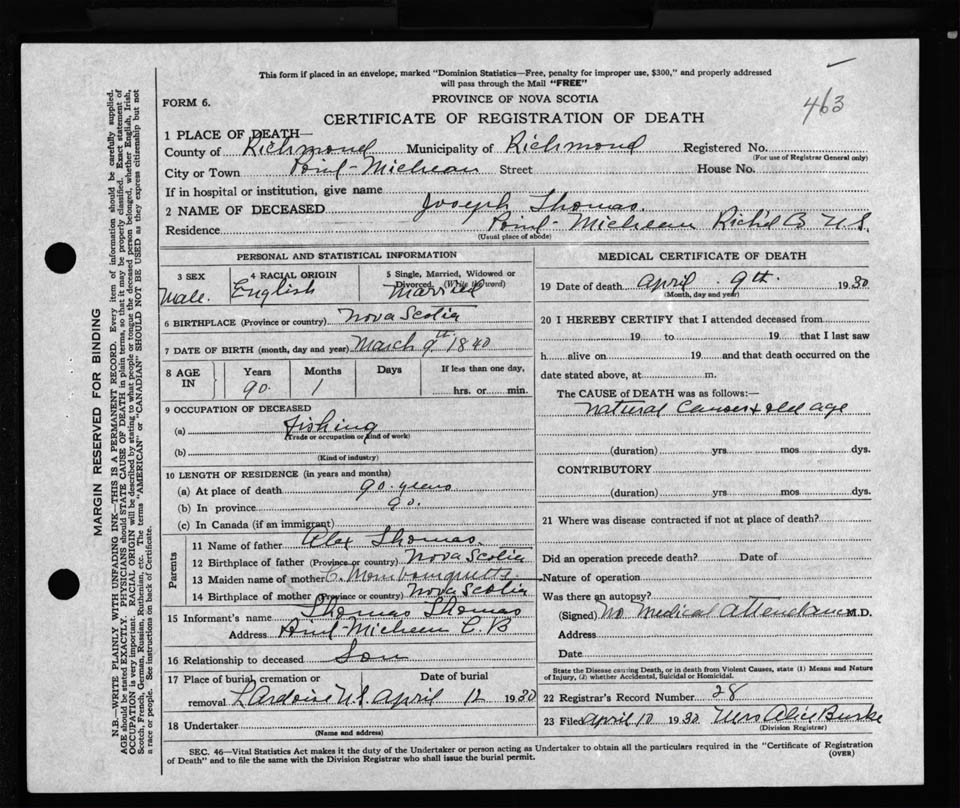 This form if placed in an envelope, marked "Dominion Statistics—Free, penalty for improper use, $300," and properly addressed
will pass through the Mail "FREE"
463
FORM 6.
PROVINCE OF NOVA SCOTIA
CERTIFICATE OF REGISTRATION OF DEATH
1 PLACE OF DEATH—
County of Richmond Municipality of Richmond Registered No.
(For use of Registrar General only)
City or Town Point-Micheau Street House No.
If in hospital or institution, give name
2 NAME OF DECEASED Joseph Thomas
Residence Point-Micheau Rich'd N.S.
(Usual place of abode)
PERSONAL AND STATISTICAL INFORMATION
3 SEX 4 RACIAL ORIGIN 5 Single, Married, Widowed or
Divorced. (Write the word)
Male. English Married
6 BIRTHPLACE (Province or country) Nova Scotia
7 DATE OF BIRTH (month, day and year) March 9th 1840
8 AGE IN Years Months Days If less than one day,
90 1 hrs. or min.
9 OCCUPATION OF DECEASED
(a) fishing
(Trade or occupation or kind of work)
(b)
(Kind of industry)
10 LENGTH OF RESIDENCE (in years and months)
(a) At place of death 90 years
(b) In province
(c) In Canada (if an immigrant)
Parents
11 Name of father Alex Thomas
12 Birthplace of father (Province or country) Nova Scotia
13 Maiden name of mother
14 Birthplace of mother (Province or country) Nova Scotia
15 Informant's name Thomas Thomas
Address Point-Micheau C.B
16 Relationship to deceased Son
17 Place of burial, cremation or Date of burial
removal L'Ardoise N.S. April 12 1930
18 Undertaker
(Name and address)
MEDICAL CERTIFICATE OF DEATH
19 Date of death April 9th. 1930
(Month, day and year)
20 I HEREBY CERTIFY that I attended deceased from
19 to 19 that I last saw
h alive on 19 and that death occurred on the
date stated above, at m.
The CAUSE of DEATH was as follows:—
Natural Causes + old age
(duration) yrs mos dys.
CONTRIBUTORY
(duration) yrs mos dys.
21 Where was disease contracted if not at place of death?
Did an operation precede death? Date of
Nature of operation
Was there an autopsy?
(Signed) No Medical Attendance M.D.
Address
Date
State the Disease causing Death, or in death from Violent Causes, state (1) Means and Nature
of Injury, (2) whether Accidental, Suicidal or Homicidal.
22 Registrar's Record Number 28
23 Filed April 10 1930 Mrs Alice Burke
(Division Registrar)
SEC. 46—Vital Statistics Act makes it the duty of the Undertaker or person acting as Undertaker to obtain all the particulars required in the "Certificate of Registration
of Death" and to file the same with the Division Registrar who shall issue the burial permit.
(OVER)
MARGIN RESERVED FOR BINDING
N.B.—WRITE PLAINLY WITH UNFADING INK—THIS IS A PERMANENT RECORD. Every item of information should be carefully supplied.
AGE should be stated EXACTLY. PHYSICIANS should STATE CAUSE OF DEATH in plain terms, so that it may be properly classified. Exact statement of
OCCUPATION is very important. RACIAL ORIGIN will be described by stating to what people or tongue the deceased person belonged, whether English, Irish,
Scotch, French, German, Russian, Ruthenian, etc. The terms "AMERICAN" or "CANADIAN" SHOULD NOT BE USED as they express citizenship but not
a race or people. See instructions on back of Certificate.